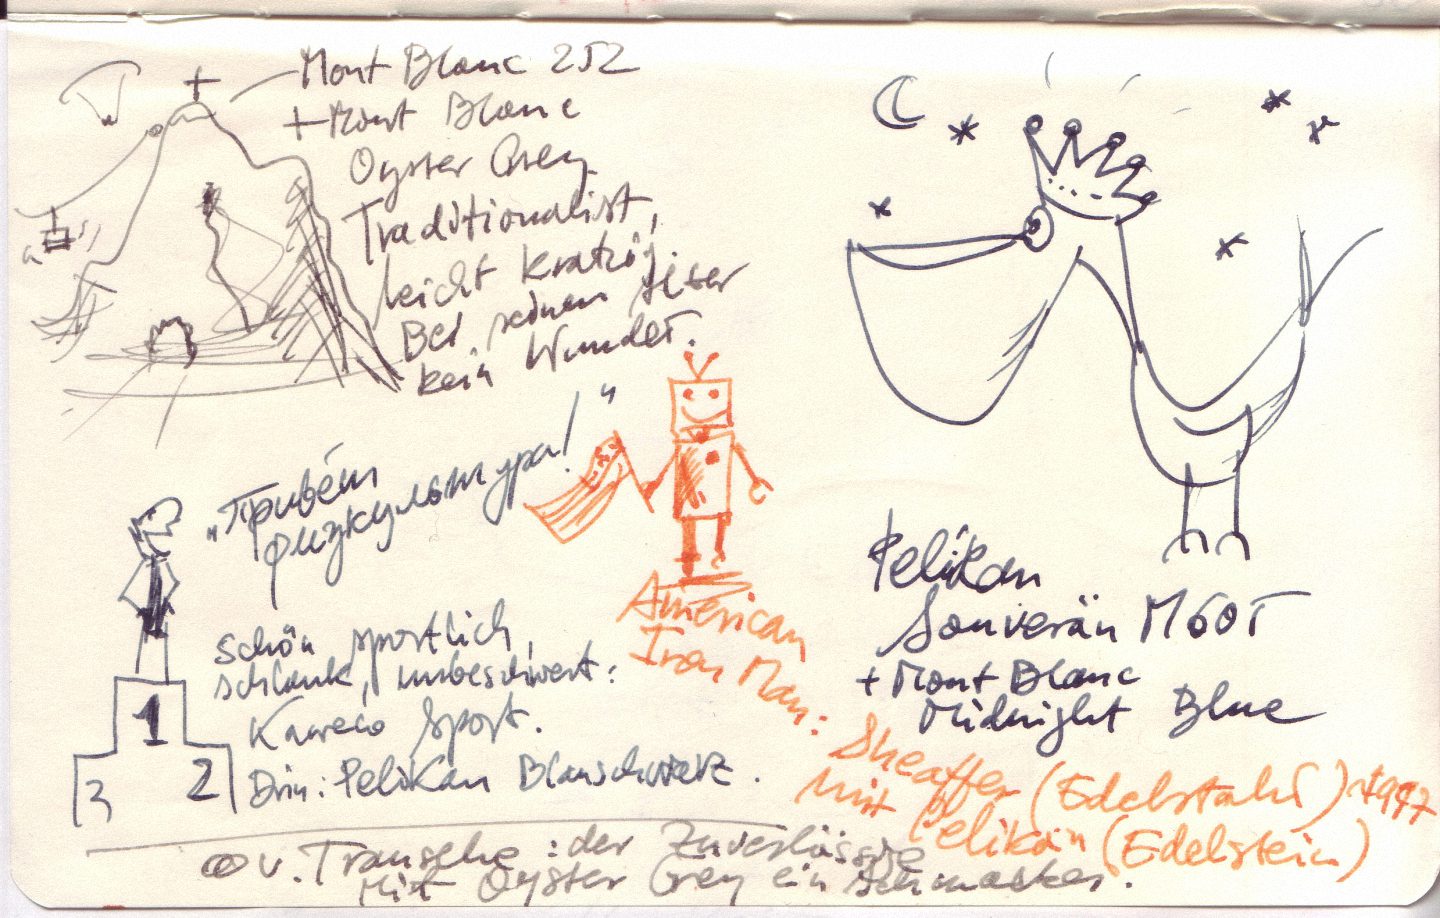 Mont Blanc 252
+ Mont Blanc
Oyster Grey
Traditionalist,
leicht kratzig.
Bei seinem Alter
kein Wunder.
"Привет
физкультура!"
schön sportlich,
schlank, unbeschwert:
Kaweco Sport.
Drin: Pelikan Blauschwarz.
1
2
3
American
Iron Man:
Sheaffer (Edelstahl) ~1997
mit Pelikan (Edelstein)
Pelikan
Souverän M60T
+ Mont Blanc
Midnight Blue
v. Transche: der Zuverlässige
Mit Oyster Grey ein